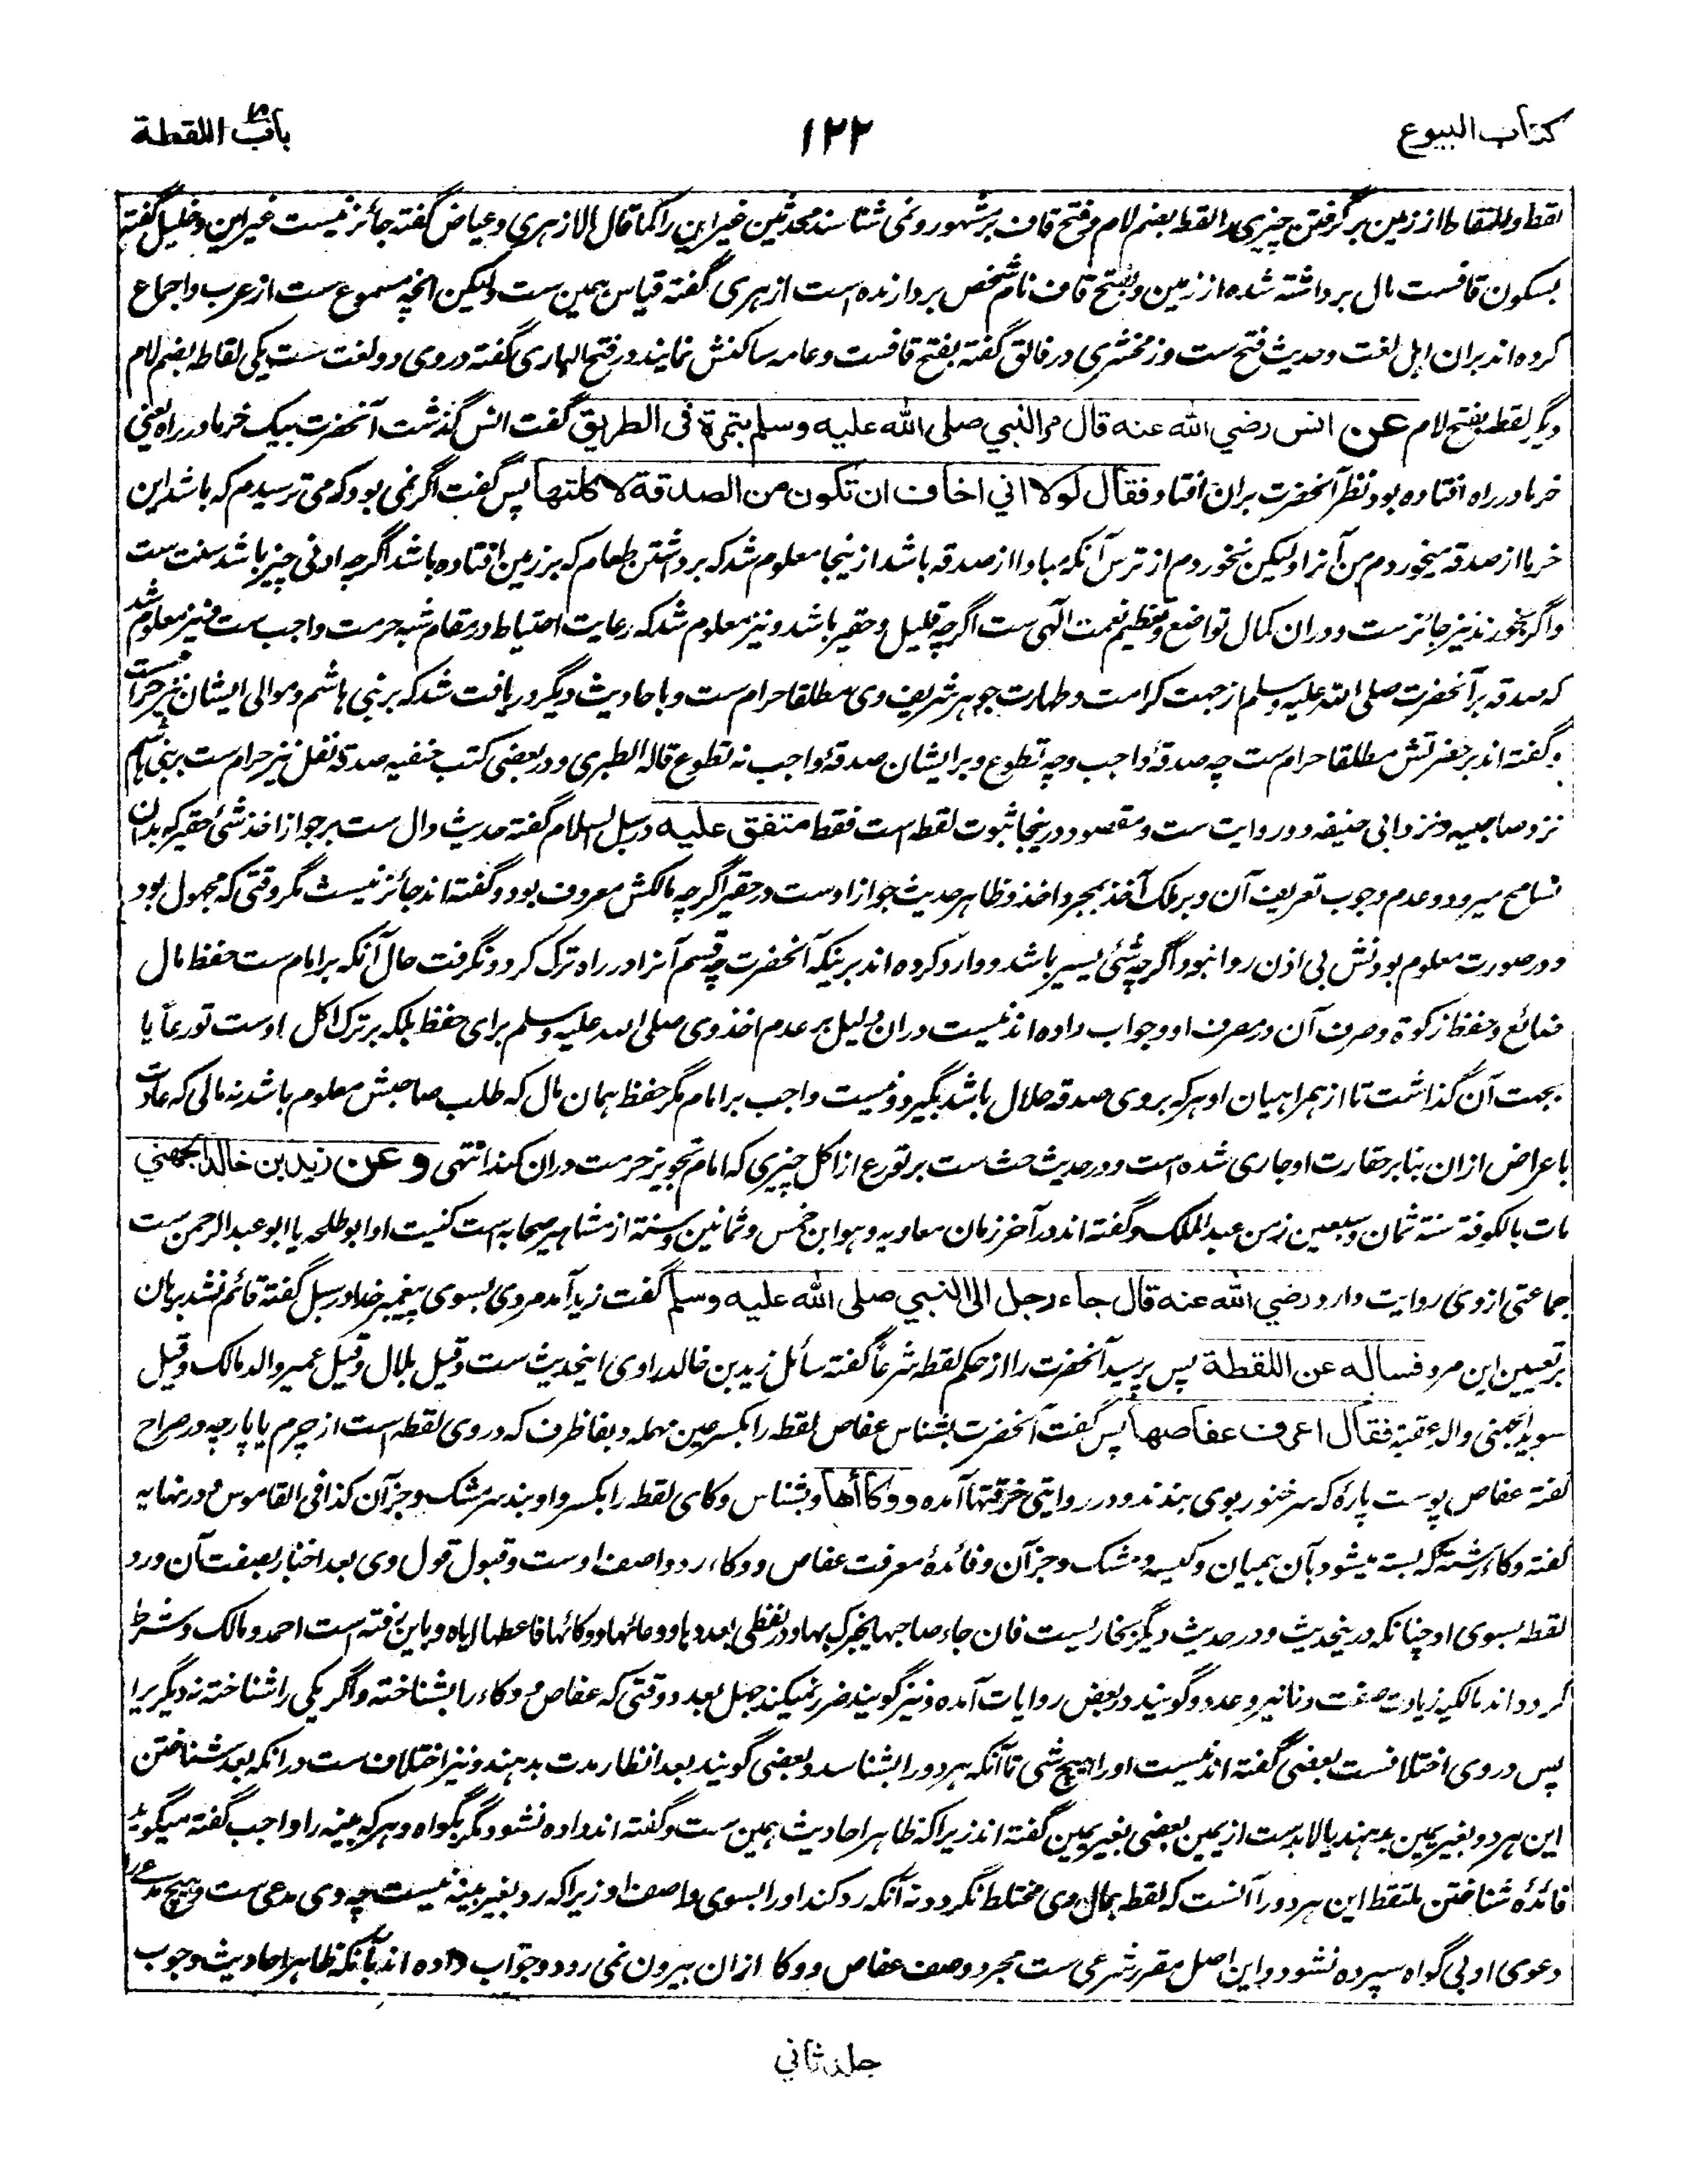 کتاب البیوع
۱۲۲
باب اللقطة
لقط والتقاط از زمین برگرفتن چیزی را لقط بضم لام وفتح قاف بر مشهور ونمی شناسند محدثین غیر این را کما قال الازهری وعیاض گفته جائز نیست غیر این وخلیل گفته
بسکون قافست مال برداشته شده از زمین وبفتح قاف نام شخص بردارنده است ازهری گفته قیاس همین ست ولیکن آنچه مسموع ست از عرب واجماع
کرده اند بران اهل لغت وحدیث فتح ست وزمخشری در فائق گفته بفتح قافست وعامه ساکنش نمایند ودر فتح الباری گفته در وی دو لغت ست یکی لقاطه بضم لام
دیگر لقطه بفتح لام عن انس رضي الله عنه قال مر النبي صلى الله عليه وسلم بتمرة فى الطريق گفت انس گذشت آنحضرت بیک خرما در راه یعنی
خرما در راه افتاده بود نظر آنحضرت بران افتاد فقال لولا اني اخاف ان تكون من الصدقة لاكلتها پس گفت اگر نمی بود که می ترسیدم که باشد این
خرما از صدقه میخوردم من آنرا ولیکن نخوردم از ترس آنکه مبادا از صدقه باشد ازینجا معلوم شد که برداشتن طعام که بر زمین افتاده باشد اگرچه ادنی چیز باشد سنت ست
واگر بخورند نیز جائز ست ودران کمال تواضع وتعظیم نعمت الٰهی ست اگرچه قلیل وحقیر باشد ونیز معلوم شد که رعایت احتیاط در مقام شبه حرمت واجب ست ونیز معلوم شد
که صدقه بر آنحضرت صلی الله علیه وسلم از جهت کرامت وطهارت جوهر شریف وی مطلقا حرام ست وباحادیث دیگر دریافت شد که بر بنی هاشم وموالی ایشان نیز حرام ست
وگفته اند بر حضرتش مطلقا حرام ست چه صدقهٔ واجب وچه تطوع وبر ایشان صدقهٔ واجب نه تطوع قاله الطبری ودر بعضی کتب حنفیه صدقهٔ نفل نیز حرام ست بر بنی هاشم
نزد صاحبیه ونزد ابی حنیفه دو روایت ست ومقصود درینجا ثبوت لقطه است فقط متفق عليه در سبل السلام گفته حدیث دال ست بر جواز اخذ شئ حقیر که بدان
تسامح میرود وعدم وجوب تعریف آن وبر ملک آخذ بمجرد اخذ وظاهر حدیث جواز اوست در حقیر اگرچه مالکش معروف بود وگفته اند جائز نیست مگر وقتی که مجهول بود
ودر صورت معلوم بودنش بی اذن روا نبود اگرچه شئ یسیر باشد ووارد کرده اند برینکه آنحضرت چه قسم آنرا در راه ترک کرد ونگرفت حال آنکه بر امام ست حفظ مال
ضائع وحفظ زکوة وصرف آن در مصرف او وجواب داده اند نیست دران دلیل بر عدم اخذ وی صلی الله علیه وسلم برای حفظ بلکه بر ترک اکل اوست تورعاً یا
بجهت آن گذاشت تا از همراهیان او هر که بروی صدقه حلال باشد بگیرد ونیست واجب بر امام مگر حفظ همان مال که طلب صاحبش معلوم باشد نه مالی که عادت
باعراض ازان بنا بر حقارت او جاری شده است ودر حدیث حث ست بر تورع از اکل چیزی که امام تجویز حرمت دران کند انتهی وعن زيد بن خالد الجهني
مات بالکوفة سنة ثمان وسبعین زمن عبد الملک وگفته اند در آخر زمان معاویه وهو ابن خمس وثمانین سنة از مشاهیر صحابه است کنیت او ابو طلحه یا ابو عبد الرحمن ست
جماعتی از وی روایت دارد رضي الله عنه قال جاء رجل الى النبي صلى الله عليه وسلم گفت زید آمد مردی بسوی پیغمبر خدا در سبل گفته قائم نشد برهان
بر تعیین این مرد فساله عن اللقطة پس پرسید آنحضرت را از حکم لقطه شرعاً گفته سائل زید بن خالد راوی اینحدیث ست وقیل بلال وقیل عمیر والد مالک وقیل
سوید الجهنی والد عقبة فقال اعرف عفاصها پس گفت آنحضرت بشناس عفاص لقطه را بکسر عین مهمله وبفا ظرف که در وی لقطه است از چرم یا پارچه در صراح
گفته عفاص پوست پارهٔ که سر خنور بوی بندند ودر روایتی خرقتها آمده ووكاأها وبشناس وکای لقطه را بکسر واو بند سر مشک وجز آن کذا فی القاموس ودر نهایه
گفته وکاء رشته که بسته میشود بآن همیان وکیسه ومشک وجز آن وفائدهٔ معرفت عفاص ووکاء رد واصف اوست وقبول قول وی بعد اخبار بصفت آن ورد
لقطه بسوی او چنانکه درینحدیث ودر حدیث دیگر بخاریست فان جاء صاحبها یخبرک بها ودر لفظی بعددها ووعائها ووکائها فاعطها ایاه وباین رفته است احمد ومالک وشرط
کرده اند مالکیه زیادت صفت دنانیر وعدد وگویند در بعض روایات آمده ونیز گویند ضرر نمیکند جهل بعدد وقتی که عفاص ووکاء را بشناخته واگر یکی را شناخته نه دیگریرا
پس در وی اختلافست بعضی گفته اند نیست او را هیچ شی تا آنکه هر دو را بشناسد وبعضی گویند بعد انتظار مدت بدهند ونیز اختلاف ست در آنکه بعد شناختن
این هر دو بغیر یمین بدهند یا لابدست از یمین بعضی بغیر یمین گفته اند زیرا که ظاهر احادیث همین ست وگفته اند داده نشود مگر بگواه وهر که بینه را واجب گفته میگوید
فائدهٔ شناختن ملتقط این هر دو را آنست که لقطه بمال وی مختلط نگردد نه آنکه رد کند او را بسوی واصف او زیرا که رد بغیر بینه نیست چه وی مدعی ست وهیچ مدعی را
دعوی او بی گواه سپرده نشود واین اصل مقرر شرعی ست مجرد وصف عفاص ووکا ازان بیرون نمی رود وجواب داده اند بآنکه ظاهر احادیث وجوب
جلد ثاني